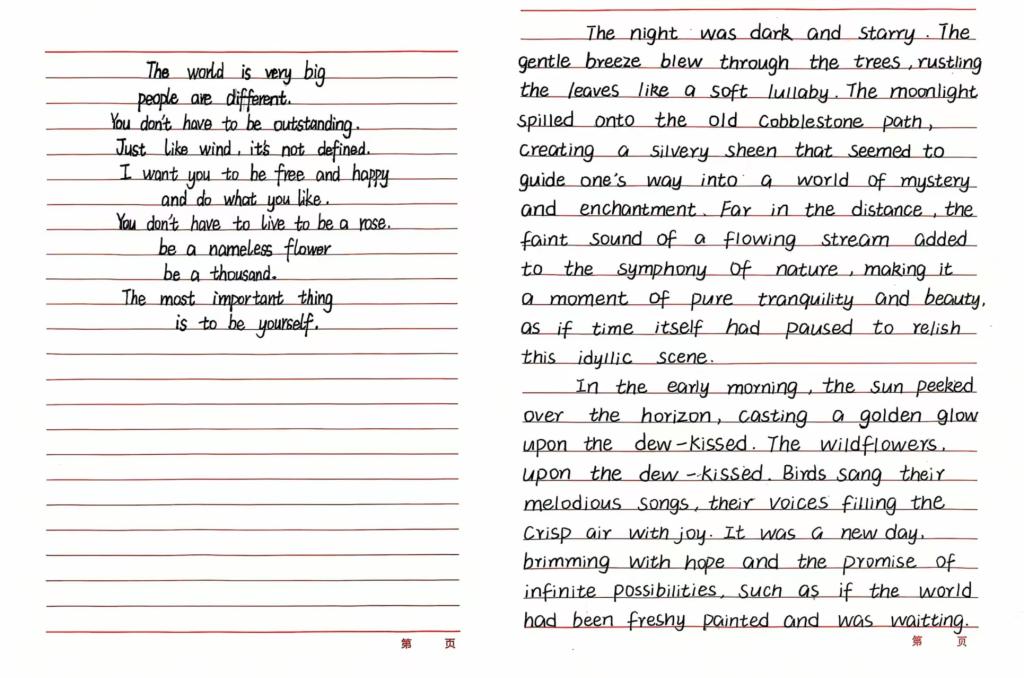 The world is very big
people are different.
You don't have to be outstanding.
Just like wind, it's not defined.
I want you to be free and happy
and do what you like.
You don't have to live to be a rose.
be a nameless flower
be a thousand.
The most important thing
is to be yourself.
第 页
The night was dark and starry. The
gentle breeze blew through the trees, rustling
the leaves like a soft lullaby. The moonlight
spilled onto the old cobblestone path,
creating a silvery sheen that seemed to
guide one's way into a world of mystery
and enchantment. Far in the distance, the
faint sound of a flowing stream added
to the symphony of nature, making it
a moment of pure tranquility and beauty,
as if time itself had paused to relish
this idyllic scene.
In the early morning, the sun peeked
over the horizon, casting a golden glow
upon the dew-kissed. The wildflowers.
upon the dew-kissed. Birds sang their
melodious songs, their voices filling the
crisp air with joy. It was a new day.
brimming with hope and the promise of
infinite possibilities, such as if the world
had been freshy painted and was waitting.
第 页